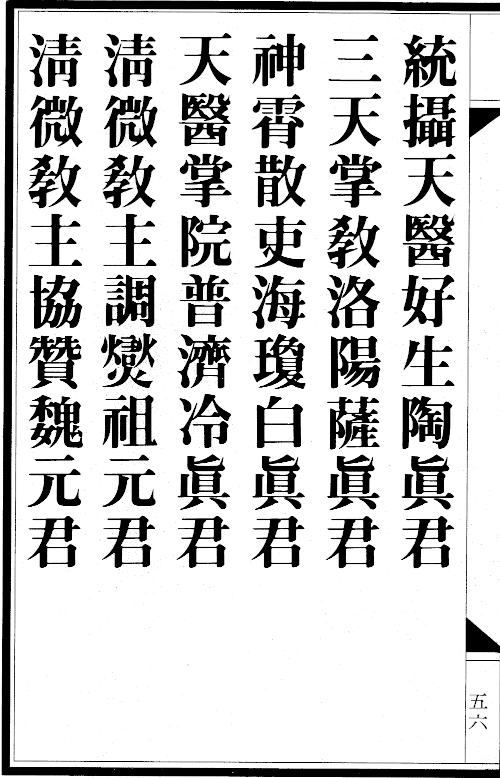 統攝天醫好生陶眞君
三天掌教洛陽薩眞君
神霄散吏海瓊白眞君
天醫掌院普濟冷眞君
淸微教主調爕祖元君
淸微教主協贊魏元君
五六